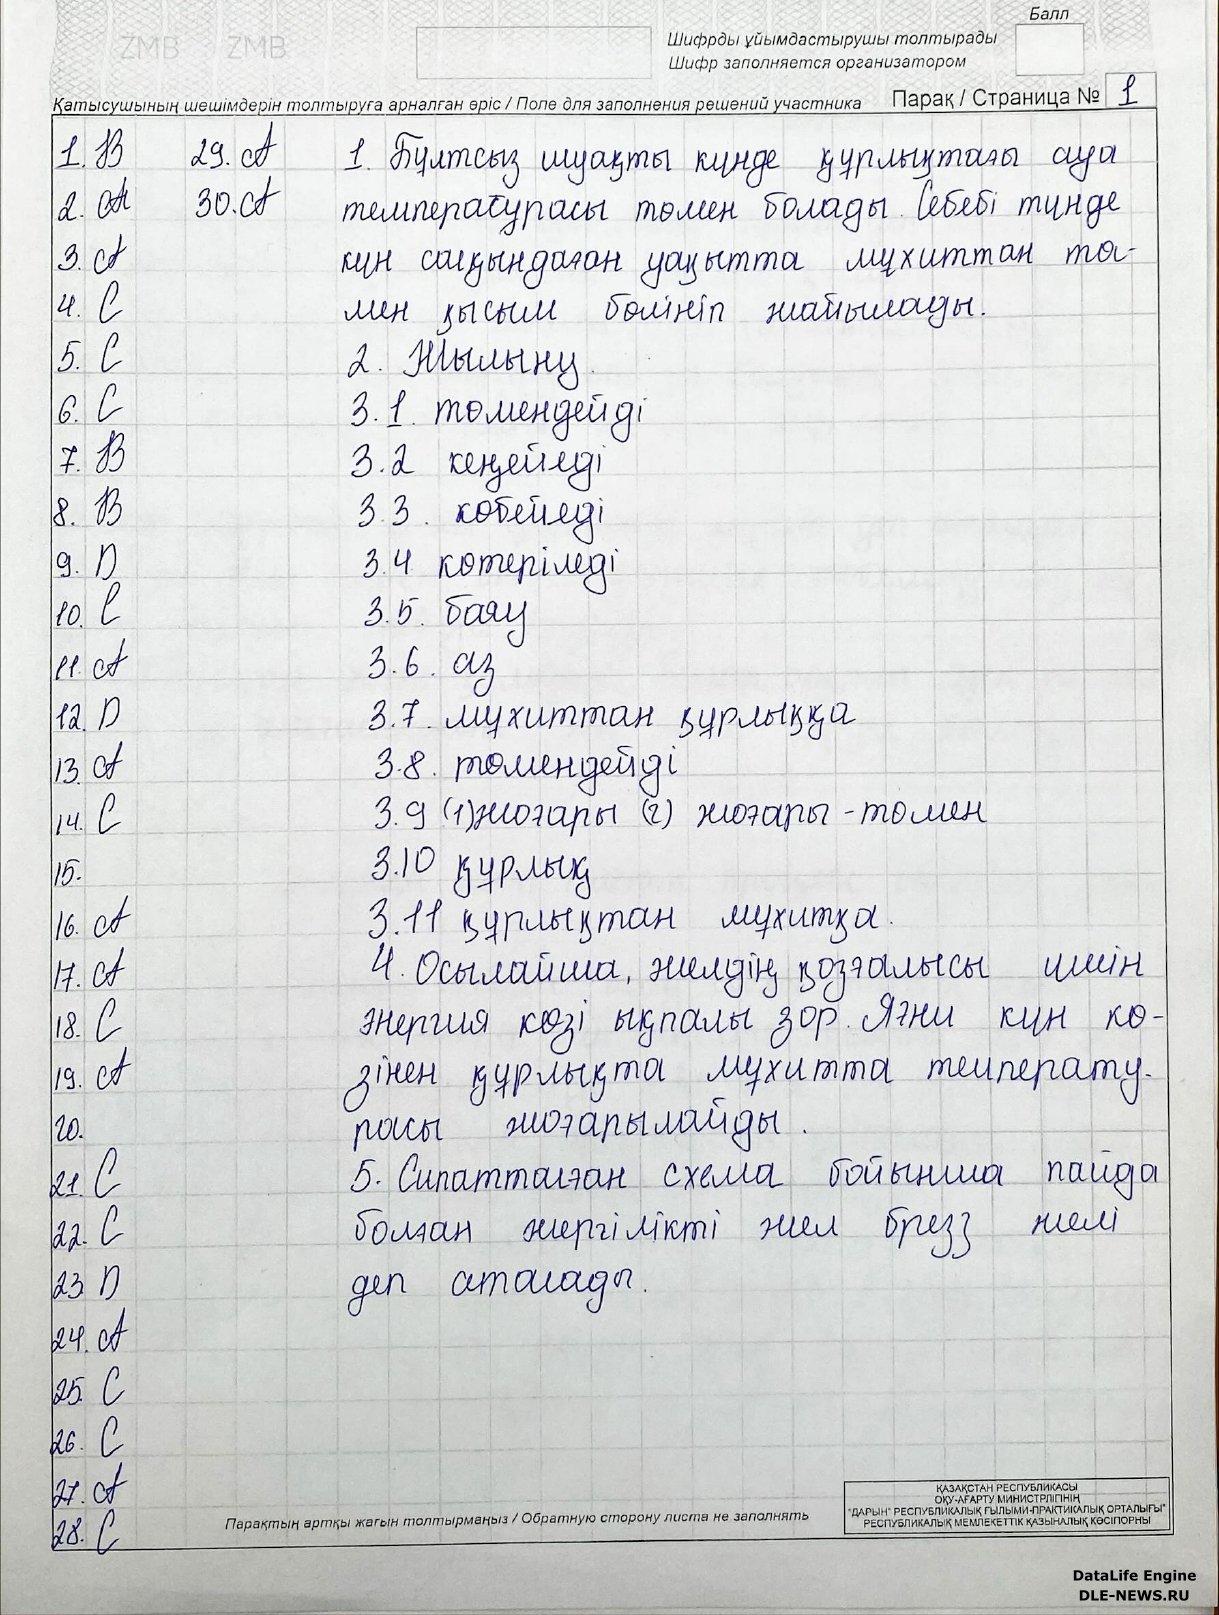 ZMB ZMB
Балл
Шифрды ұйымдастырушы толтырады
Шифр заполняется организатором
Қатысушының шешімдерін толтыруға арналған өріс / Поле для заполнения решений участника
Парақ / Страница № 1
1. B
2. A
3. A
4. C
5. C
6. C
7. B
8. B
9. D
10. C
11. A
12. D
13. A
14. C
15.
16. A
17. A
18. C
19. A
20.
21. C
22. C
23. D
24. A
25. C
26. C
27. A
28. C
29. A
30. A
1. Бұлтсыз шуақты күнде құрлықтағы ауа
температурасы төмен болады. Себебі түнде
күн салқындаған уақытта мұхиттан тө-
мен қысым бөлініп жайылады.
2. Жылыну.
3.1. төмендейді
3.2 кеңейеді
3.3. көбейеді
3.4 көтеріледі
3.5. баяу
3.6. аз
3.7. мұхиттан құрлыққа
3.8. төмендейді
3.9 (1) жоғары (2) жоғары - төмен
3.10 құрлық
3.11 құрлықтан мұхитқа.
4. Осылайша, желдің қозғалысы үшін
энергия көзі ықпалы зор. Яғни күн кө-
зінен құрлықта мұхитта температу-
расы жоғарылайды.
5. Сипатталған схема бойынша пайда
болған жергілікті жел бриз желі
деп аталады.
Парақтың артқы жағын толтырмаңыз / Обратную сторону листа не заполнять
ҚАЗАҚСТАН РЕСПУБЛИКАСЫ
ОҚУ-АҒАРТУ МИНИСТРЛІГІНІҢ
"ДАРЫН" РЕСПУБЛИКАЛЫҚ ҒЫЛЫМИ-ПРАКТИКАЛЫҚ ОРТАЛЫҒЫ"
РЕСПУБЛИКАЛЫҚ МЕМЛЕКЕТТІК ҚАЗЫНАЛЫҚ КӘСІПОРНЫ
DataLife Engine
DLE-NEWS.RU